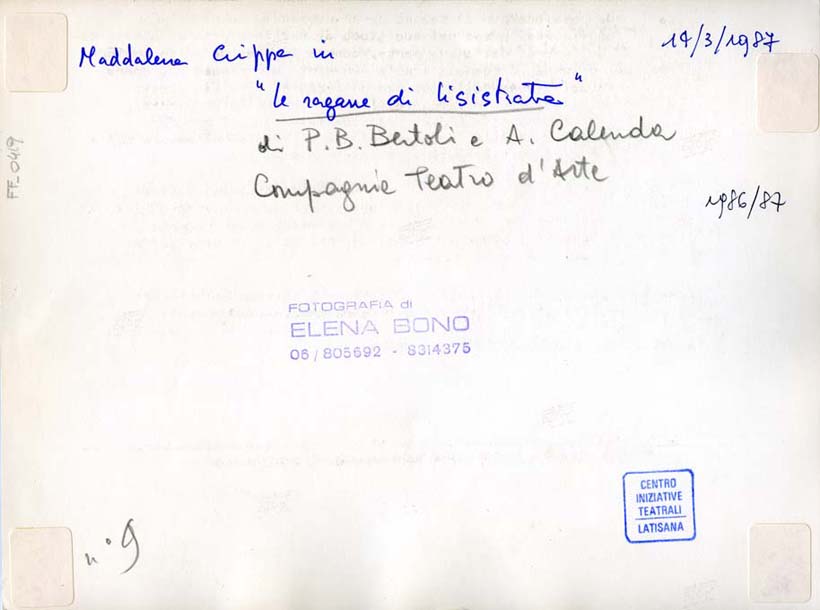 14/3/1987
Maddalena Crippa in
"le ragane di lisistrata"
di P.B. Bertoli e A. Calenda
Compagnia Teatro d'Arte
1986/87
FF_0419
FOTOGRAFIA di
ELENA BONO
06/805692 - 8314375
CENTRO
INIZIATIVE
TEATRALI
LATISANA
n°9